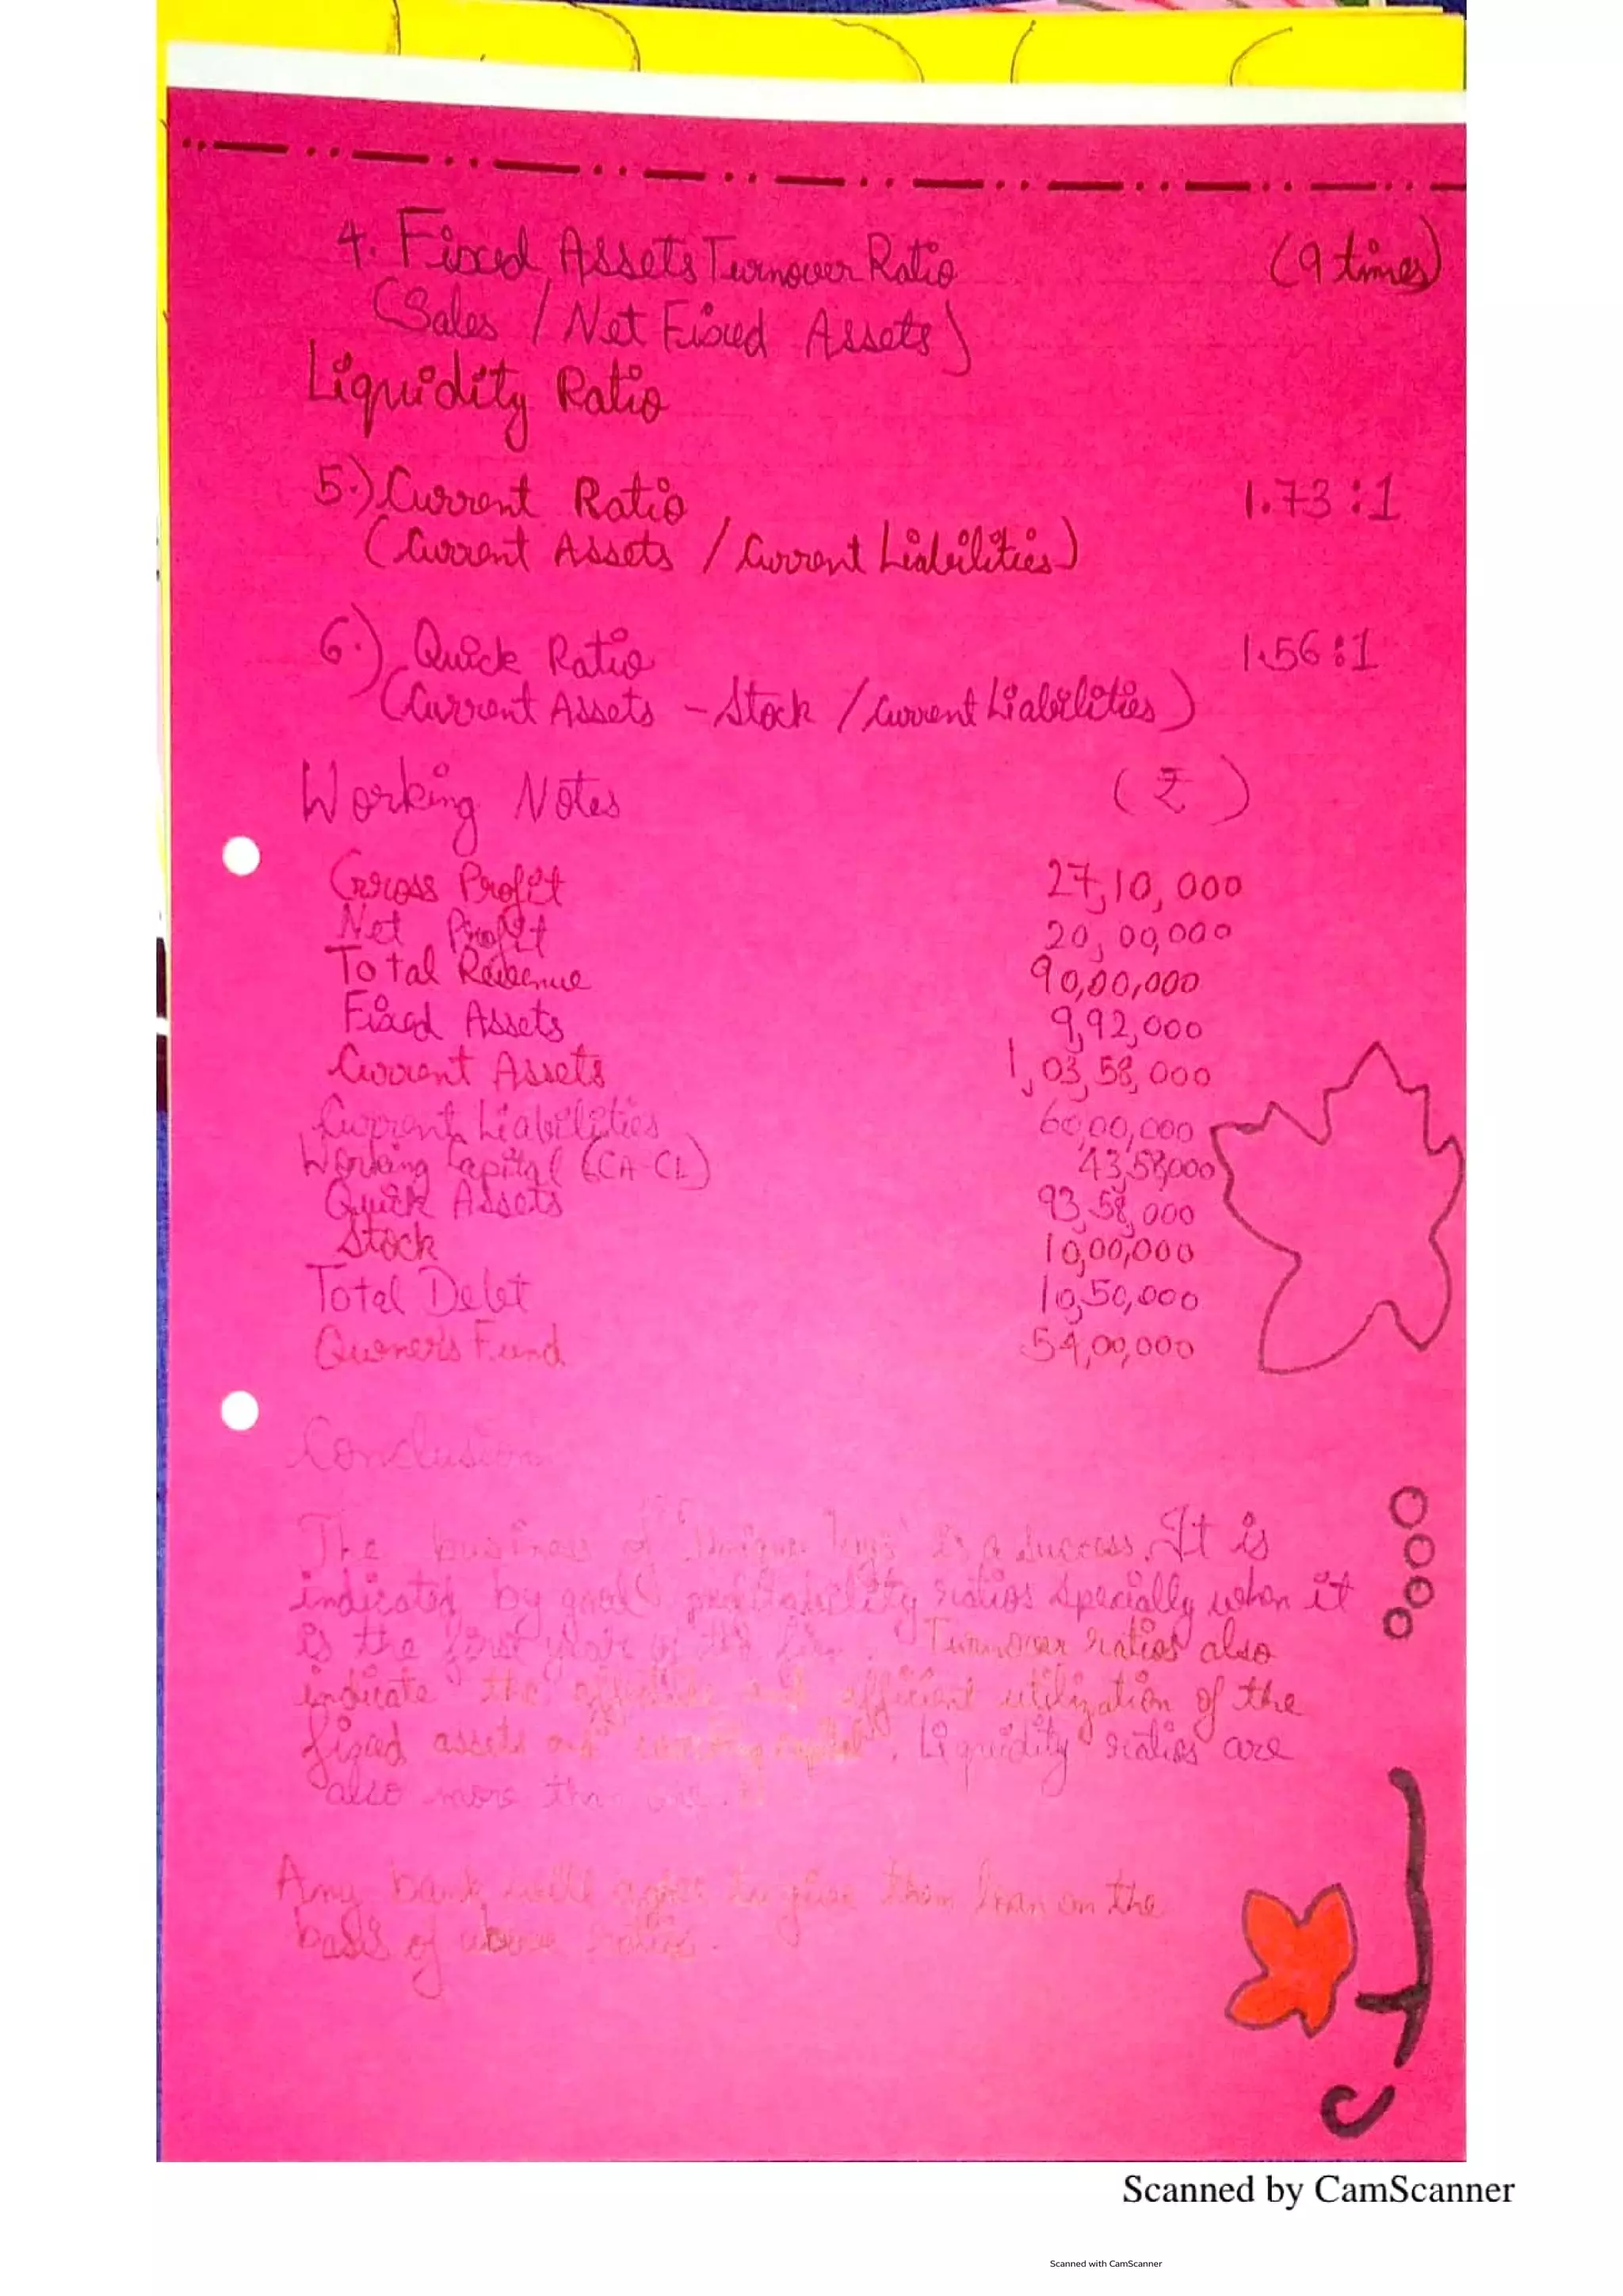 4. Fixed Assets Turnover Ratio (9 times)
(Sales / Net Fixed Assets)
Liquidity Ratio
5.) Current Ratio 1.73 : 1
(Current Assets / Current Liabilities)
6.) Quick Ratio 1.56 : 1
(Current Assets - Stock / Current Liabilities)
Working Notes (₹)
Gross Profit 27,10,000
Net Profit 20,00,000
Total Revenue 90,00,000
Fixed Assets 9,92,000
Current Assets 1,03,58,000
Current Liabilities 60,00,000
Working Capital (CA-CL) 43,58,000
Quick Assets 93,58,000
Stock 10,00,000
Total Debt 10,50,000
Owner's Fund 54,00,000
Conclusion
The business of "Unique is a success. It is
indicated by good profitability ratios specially when it
is the first year of the . Turnover ratios also
indicate the and efficient utilization of the
fixed assets and working capital. Liquidity ratios are
also more than one.
Any bank will agree to give them loan on the
basis of above ratios.
Scanned by CamScanner
Scanned with CamScanner